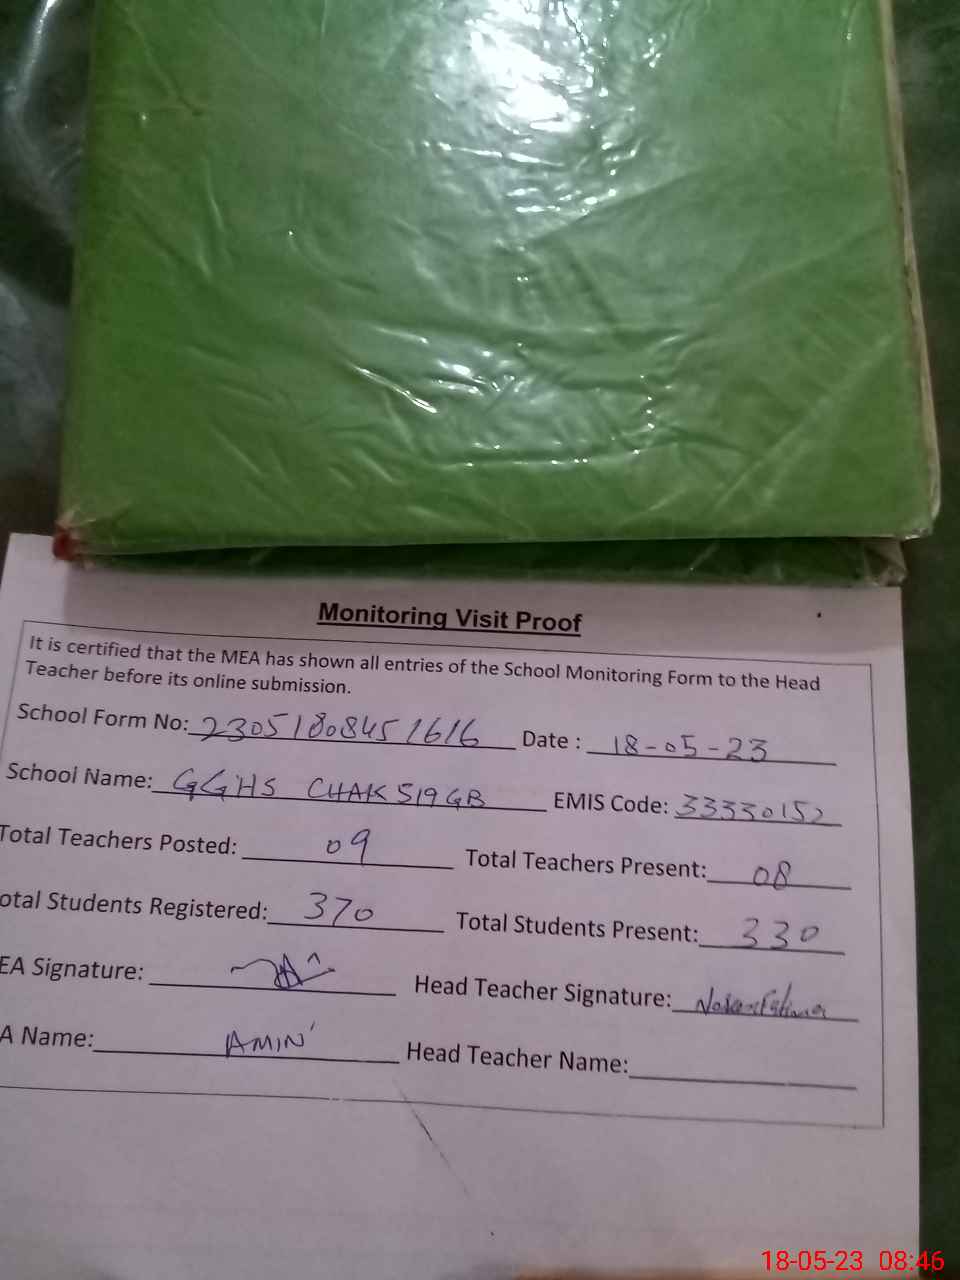 Monitoring Visit Proof
It is certified that the MEA has shown all entries of the School Monitoring Form to the Head
Teacher before its online submission.
School Form No: 23051808451616 Date : 18-05-23
School Name: GGHS CHAK 519 GB EMIS Code: 33330152
Total Teachers Posted: 09 Total Teachers Present: 08
otal Students Registered: 370 Total Students Present: 330
EA Signature: Head Teacher Signature:
A Name: AMIN Head Teacher Name:
18-05-23 08:46